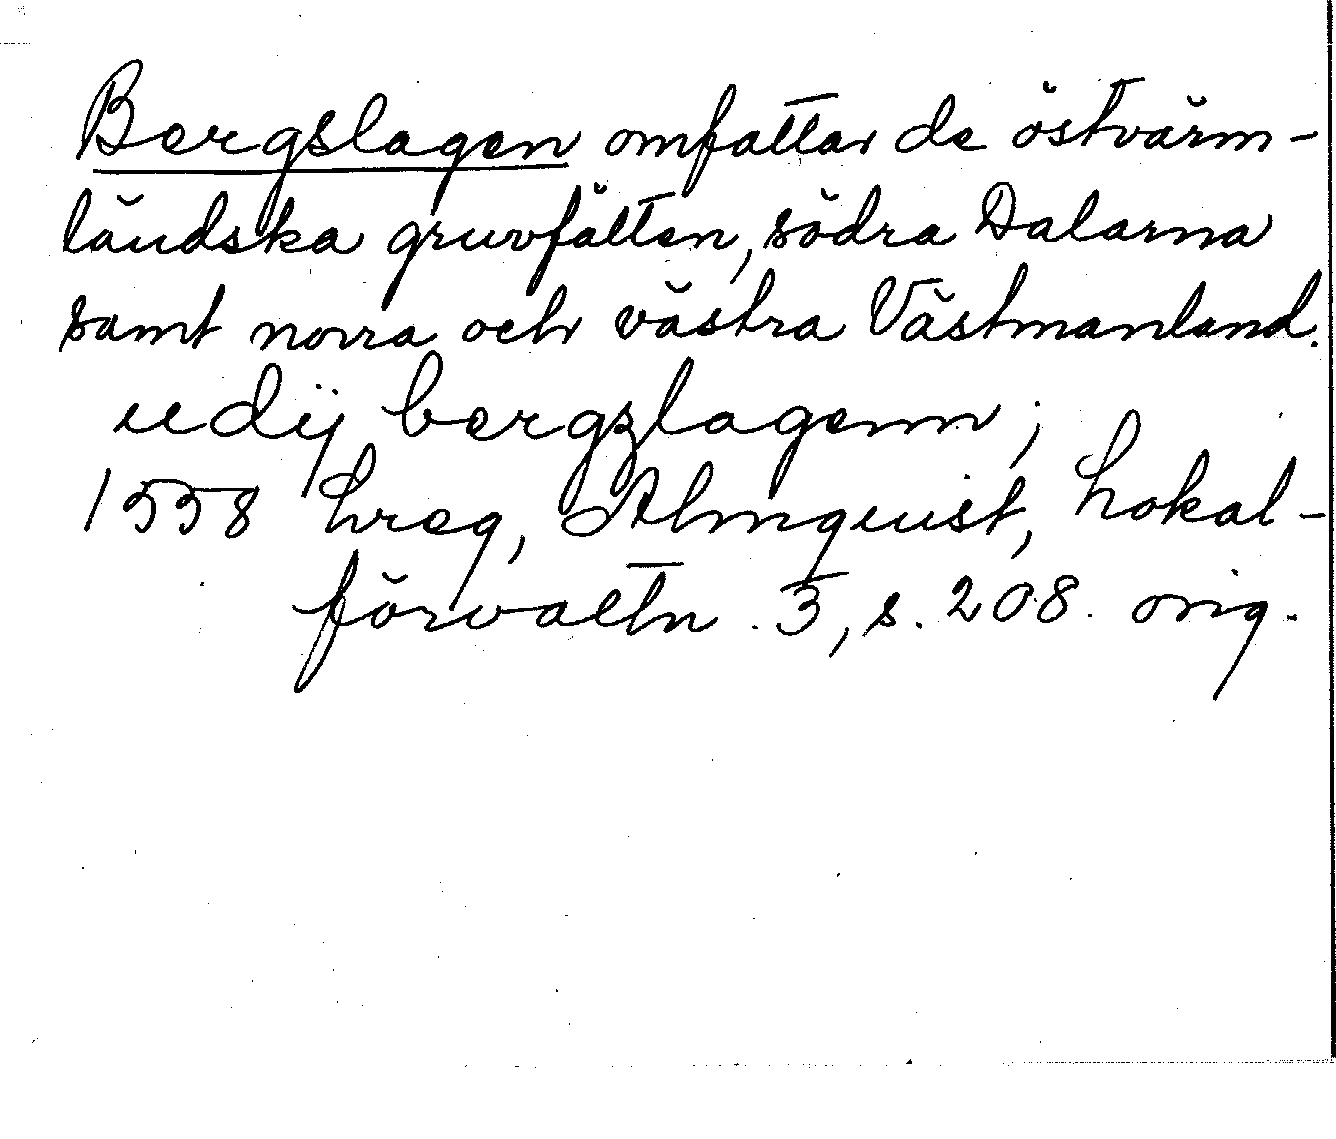 Bergslagen omfattar de östvärm-
ländska gruvfälten, södra Dalarna
samt norra och västra Västmanland.
udij bergzlagenn;
1558 Lreg, Almquist, Lokal-
förvaltn. 3, s. 208. orig.